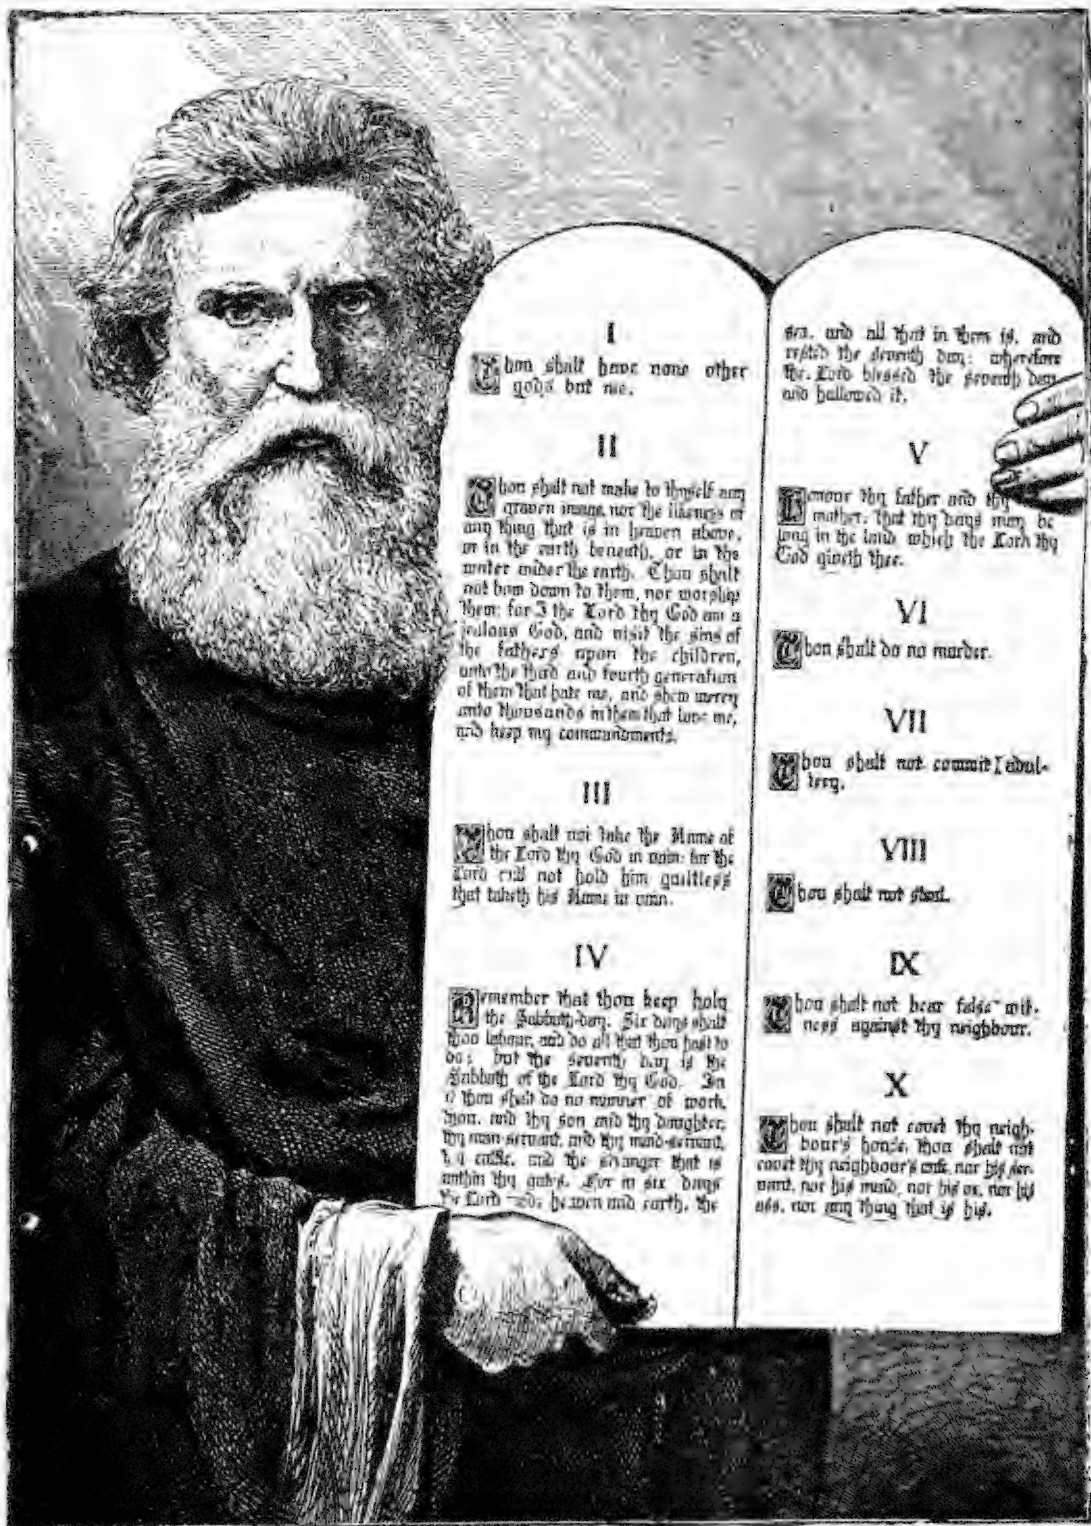 I
Thou shalt have none other
gods but me.
II
Thou shalt not make to thyself any
graven image, nor the likeness of
any thing that is in heaven above,
or in the earth beneath, or in the
water under the earth. Thou shalt
not bow down to them, nor worship
them: for I the Lord thy God am a
jealous God, and visit the sins of
the fathers upon the children,
unto the third and fourth generation
of them that hate me, and shew mercy
unto thousands in them that love me,
and keep my commandments.
III
Thou shalt not take the Name of
the Lord thy God in vain: for the
Lord will not hold him guiltless
that taketh his Name in vain.
IV
Remember that thou keep holy
the Sabbath-day. Six days shalt
thou labour, and do all that thou hast to
do; but the seventh day is the
Sabbath of the Lord thy God. In
it thou shalt do no manner of work,
thou, and thy son and thy daughter,
thy man-servant, and thy maid-servant,
thy cattle, and the stranger that is
within thy gates. For in six days
the Lord heaven and earth, the
sea, and all that in them is, and
rested the seventh day: wherefore
the Lord blessed the seventh day
and hallowed it.
V
Honour thy father and thy
mother; that thy days may be
long in the land which the Lord thy
God giveth thee.
VI
Thou shalt do no murder.
VII
Thou shalt not commit adul-
tery.
VIII
Thou shalt not steal.
IX
Thou shalt not bear false wit-
ness against thy neighbour.
X
Thou shalt not covet thy neigh-
bour's house, thou shalt not
covet thy neighbour's wife, nor his ser-
vant, nor his maid, nor his ox, nor his
ass, nor any thing that is his.